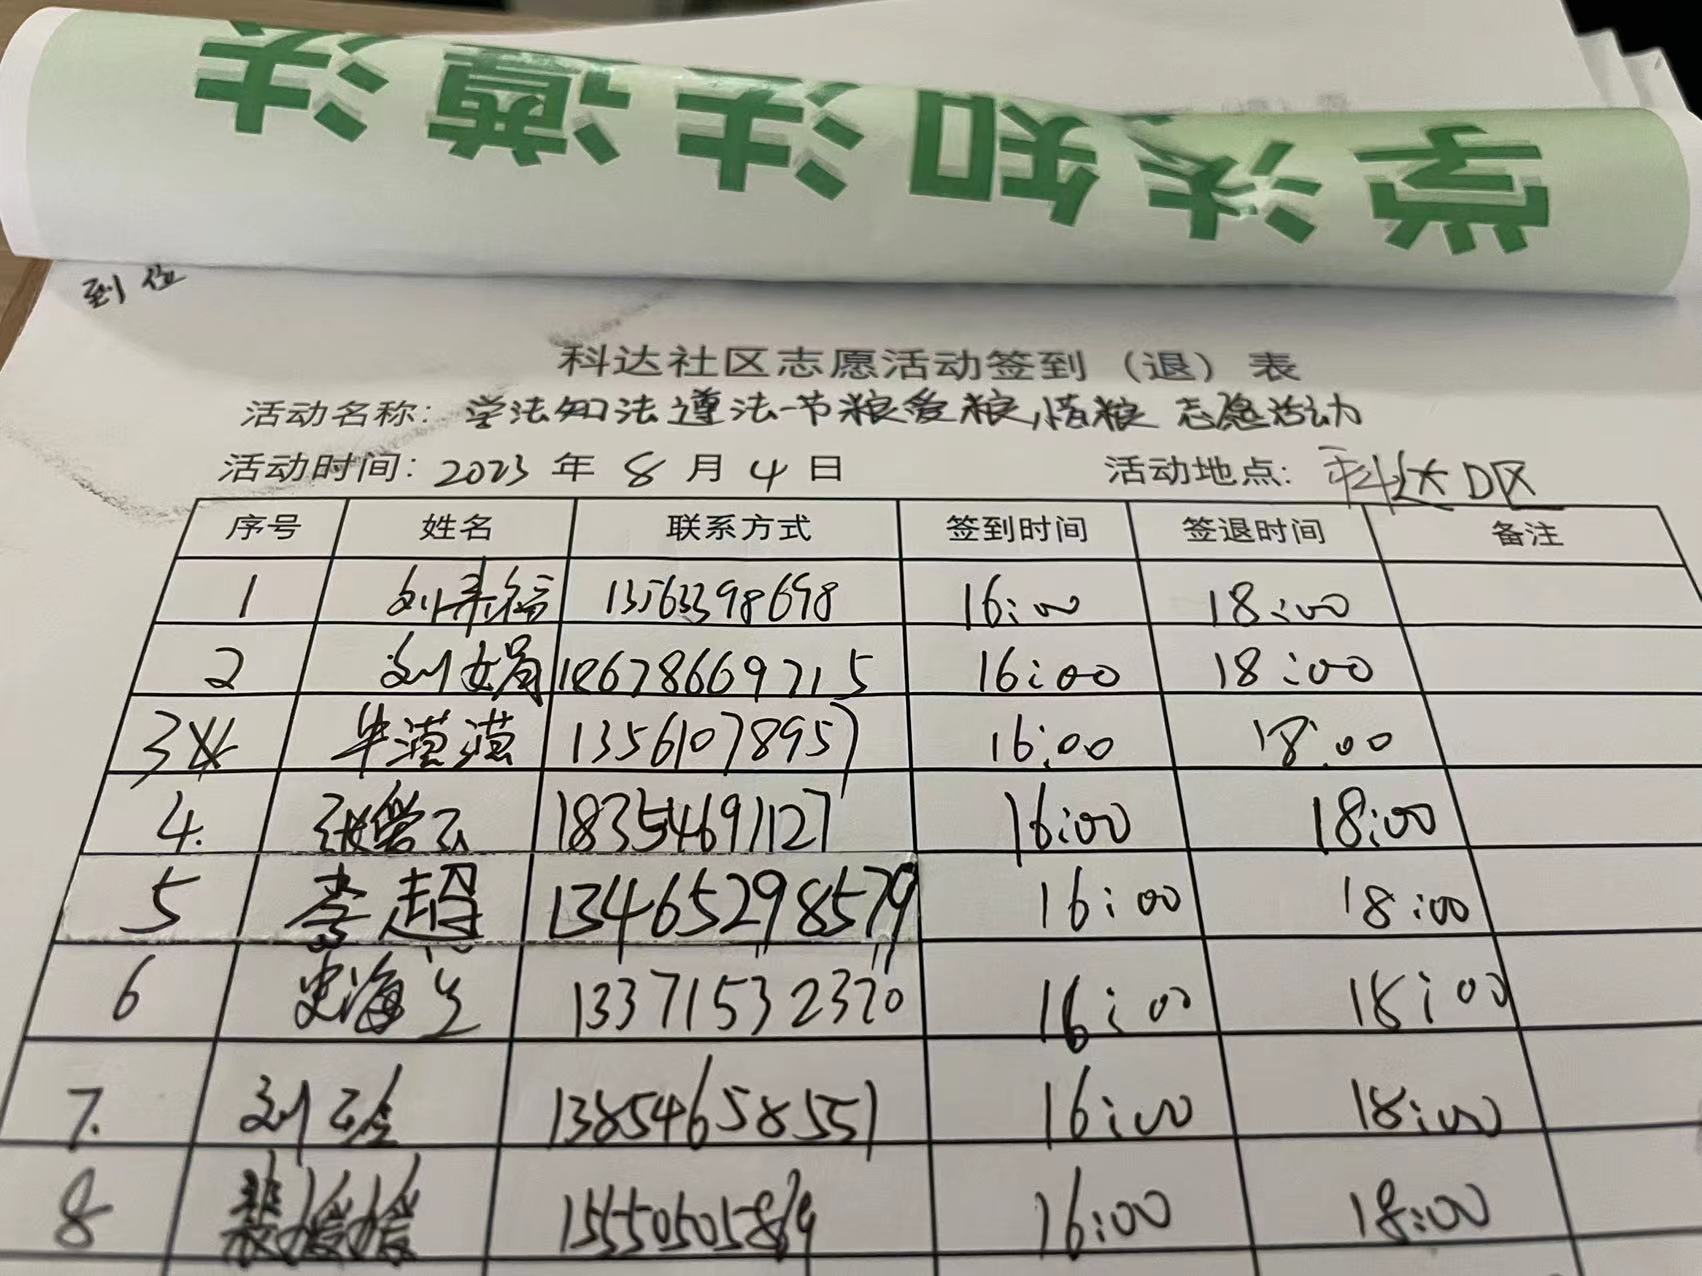 学法知法遵法
到位
科达社区志愿活动签到（退）表
活动名称：学法知法遵法-节粮爱粮,惜粮 志愿活动
活动时间：2023年8月4日 活动地点：科达D区
序号 姓名 联系方式 签到时间 签退时间 备注
1 刘 13563398698 16:00 18:00
2 刘文娟 18678669715 16:00 18:00
3 牟漠漠 13561078957 16:00 18:00
4. 张学云 18354691127 16:00 18:00
5 李超 13465298579 16:00 18:00
6 史海生 13371532370 16:00 18:00
7. 刘 13854658551 16:00 18:00
8 裴媛媛 16:00 18:00